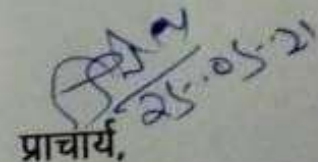 25.05.21
प्राचार्य,